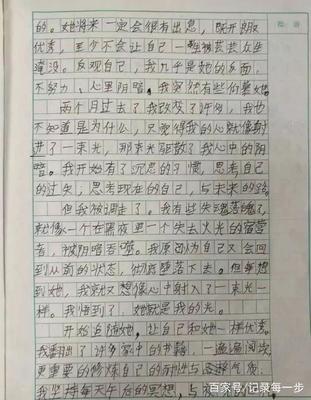 的。她将来一定会很有出息，既开朗
优秀，至少不会让自己一生被芸芸众生
淹没。反观自己，我几乎是她的反面，
不努力、心里阴暗。我突然有些仰慕她。
两个月过去了我改变了许多，我也
不知道是为什么，只觉得我的心就像射
进了一束光，那束光驱散了我心中的阴
暗。我开始有了沉思的习惯，思考自己
的过失，思考现在的自己，与未来的路。
但我被调走了。我有些失魂落魄了，
就像一个在黑夜里一个失去火光的宿营
者，被阴暗吞噬。我原以为自己又会回
到从前的状态，彻底堕落下去。但每想
到她，我就又想像心中射入了一束光一
样。我悟到了，她就是我的光。
开始追随她，让自己和她一样优秀。
我翻出了许多家中的书籍，一遍遍阅读，
更重要的修炼自己的
我坚持每天午后的冥想，与
百家号/记录每一步